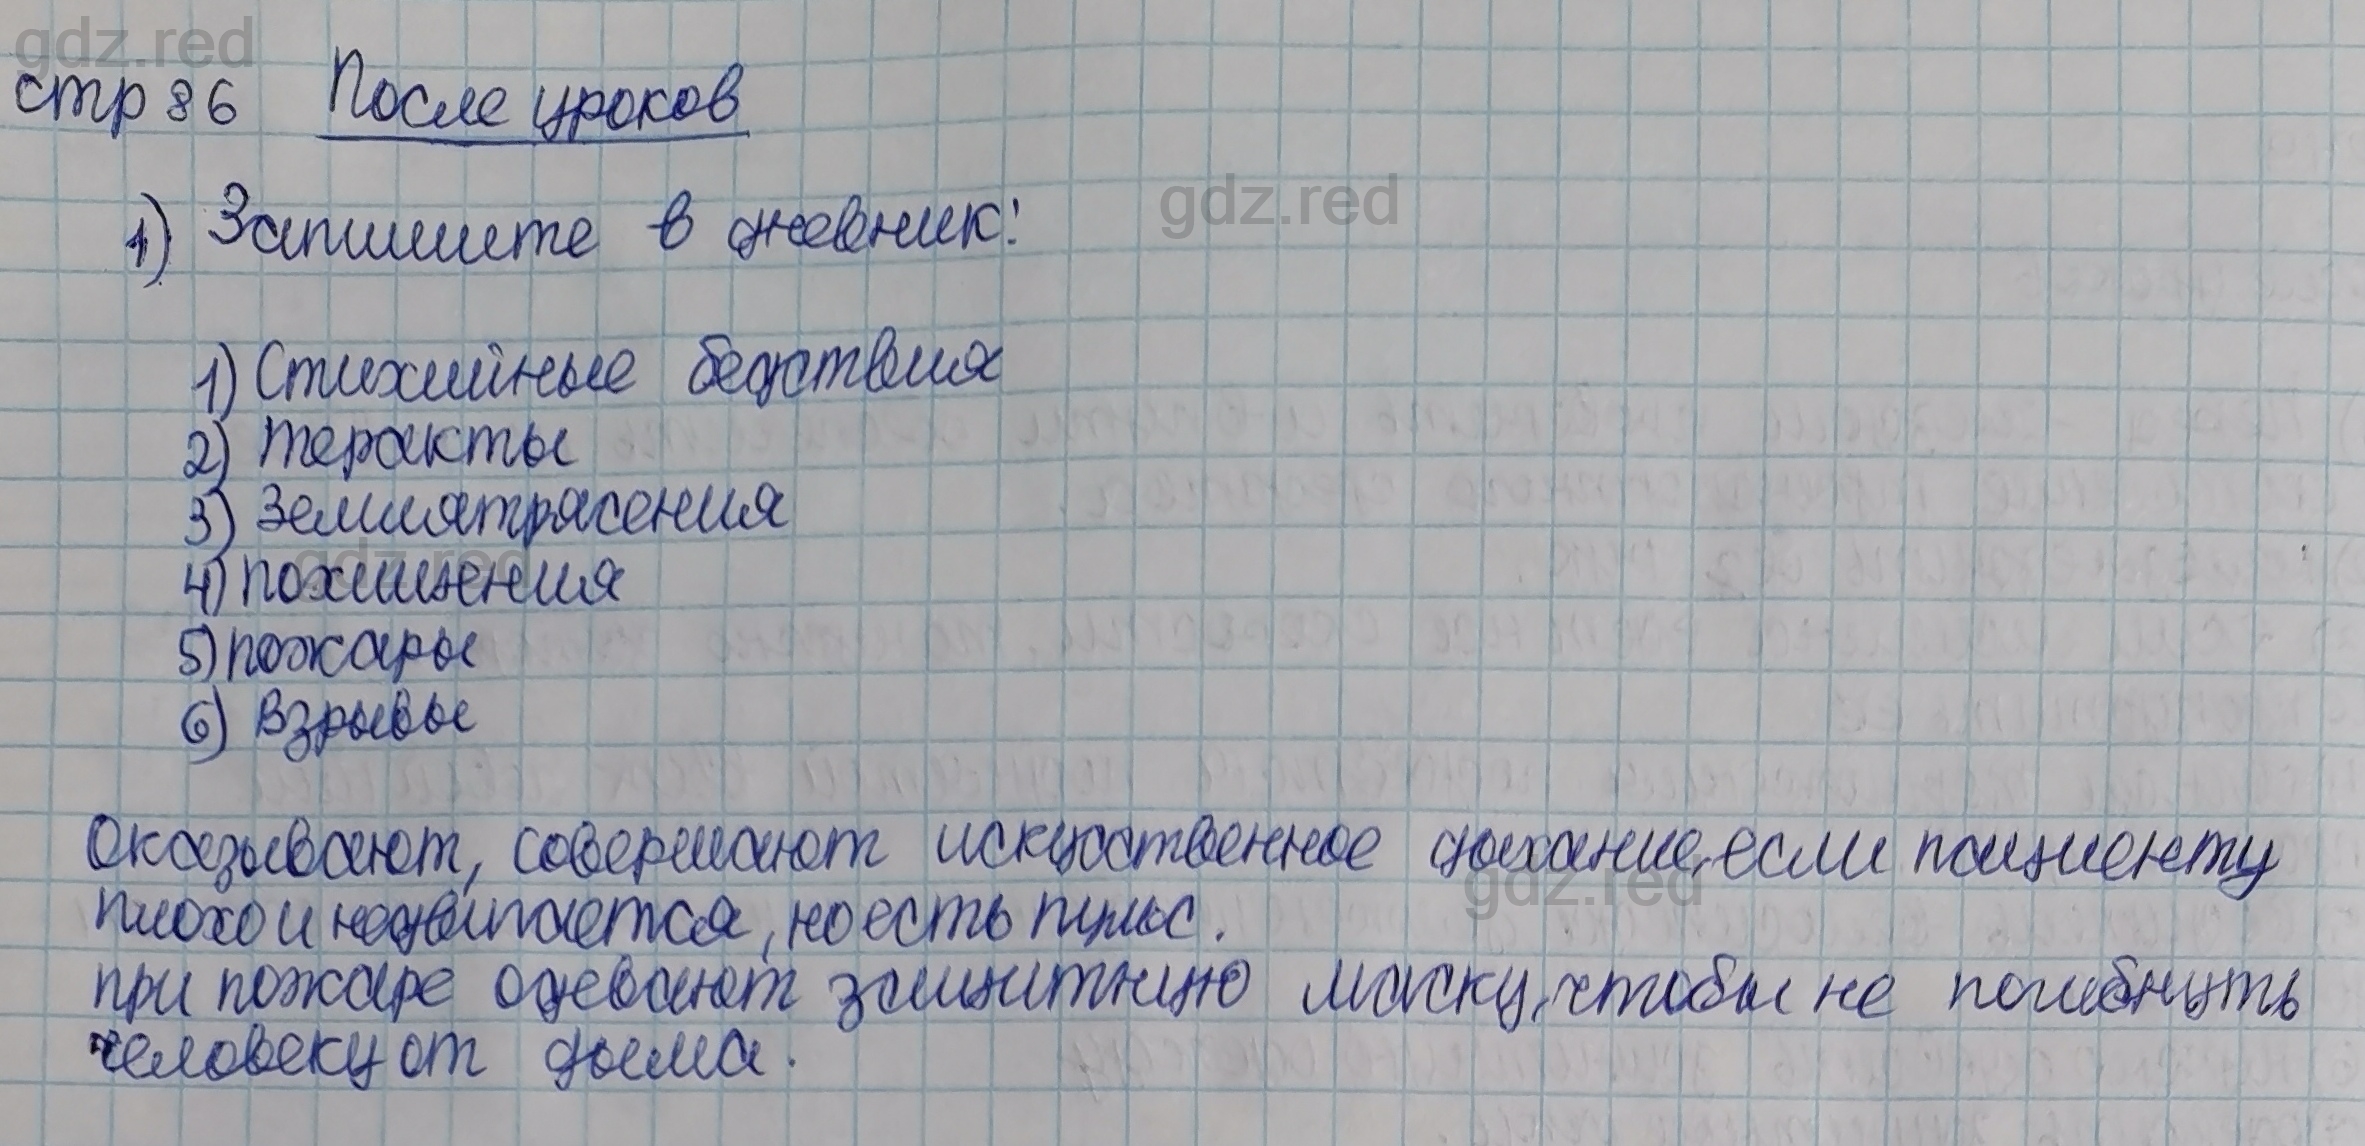 gdz.red
стр 86 После уроков
gdz.red
1) Запишите в дневник:
1) Стихийные бедствия
2) теракты
3) Землятрясения
gdz.red
4) похищения
5) пожары
6) Взрывы
Оказывают, совершают искусственное дыхание, если пациенту
gdz.red
плохо и не двигается, но есть пульс.
при пожаре одевают защитную маску, чтобы не погибнуть
человеку от дыма.